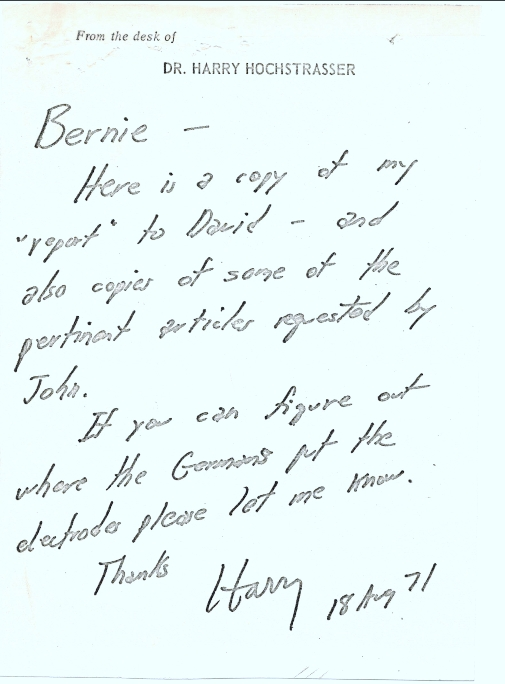 From the desk of
DR. HARRY HOCHSTRASSER
Bernie —
Here is a copy of my
"report" to David - and
also copies of some of the
pertinent articles requested by
John.
If you can figure out
where the Germans put the
electrodes please let me know.
Thanks
Harry 18 Aug 71